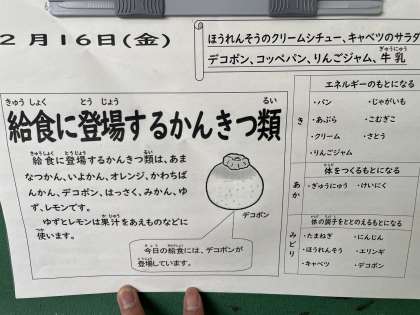 2月16日(金)
ほうれんそうのクリームシチュー、キャベツのサラダ
デコポン、コッペパン、りんごジャム、牛乳
ぎゅうにゅう
きゅうしょく とうじょう るい
給食に登場するかんきつ類
きゅうしょく とうじょう るい
給食に登場するかんきつ類は、あま
なつかん、いよかん、オレンジ、かわちば
んかん、デコポン、はっさく、みかん、ゆ
ず、レモンです。
かじゅう
ゆずとレモンは果汁をあえものなどに
つか
使います。
デコポン
きょう きゅうしょく
今日の給食には、デコポンが
とうじょう
登場しています。
エネルギーのもとになる
き
・パン ・じゃがいも
・あぶら ・こむぎこ
・クリーム ・さとう
・りんごジャム
からだ
体をつくるもとになる
あか
・ぎゅうにゅう ・けいにく
からだ ちょうし
体の調子をととのえるもとになる
みどり
・たまねぎ ・にんじん
・ほうれんそう ・エリンギ
・キャベツ ・デコポン